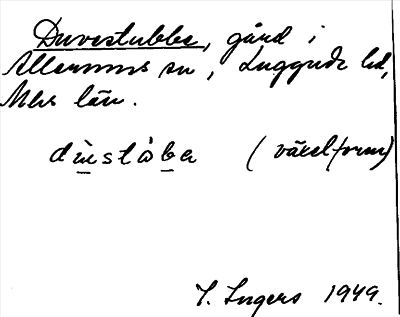 Duvestubbe, gård i
Allerums sn, Luggude hd,
Mlhs län.
dùstàba (växelform)
I. Ingers 1949.